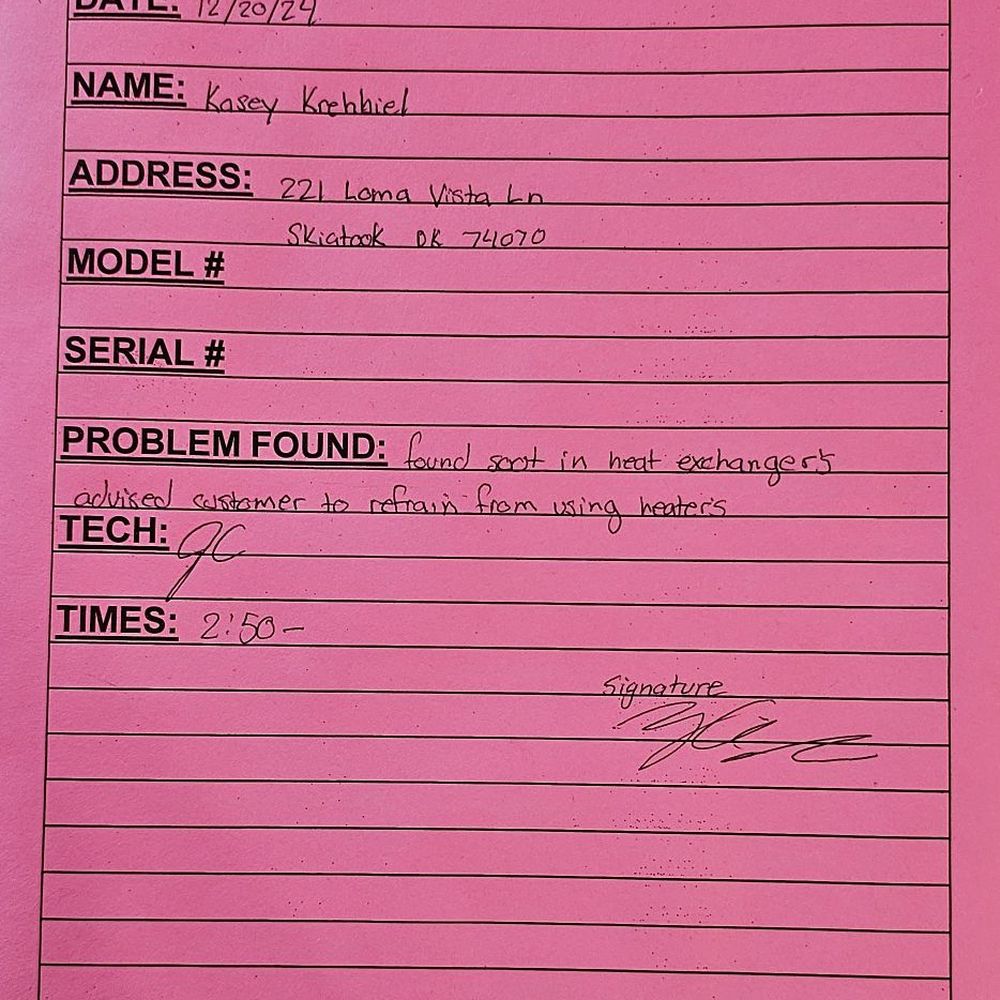 DATE: 12/20/24
NAME: Kasey Krehbiel
ADDRESS: 221 Loma Vista Ln
Skiatook OK 74070
MODEL #
SERIAL #
PROBLEM FOUND: found soot in heat exchanger's
advised customer to refrain from using heater's
TECH: GC
TIMES: 2:50-
Signature